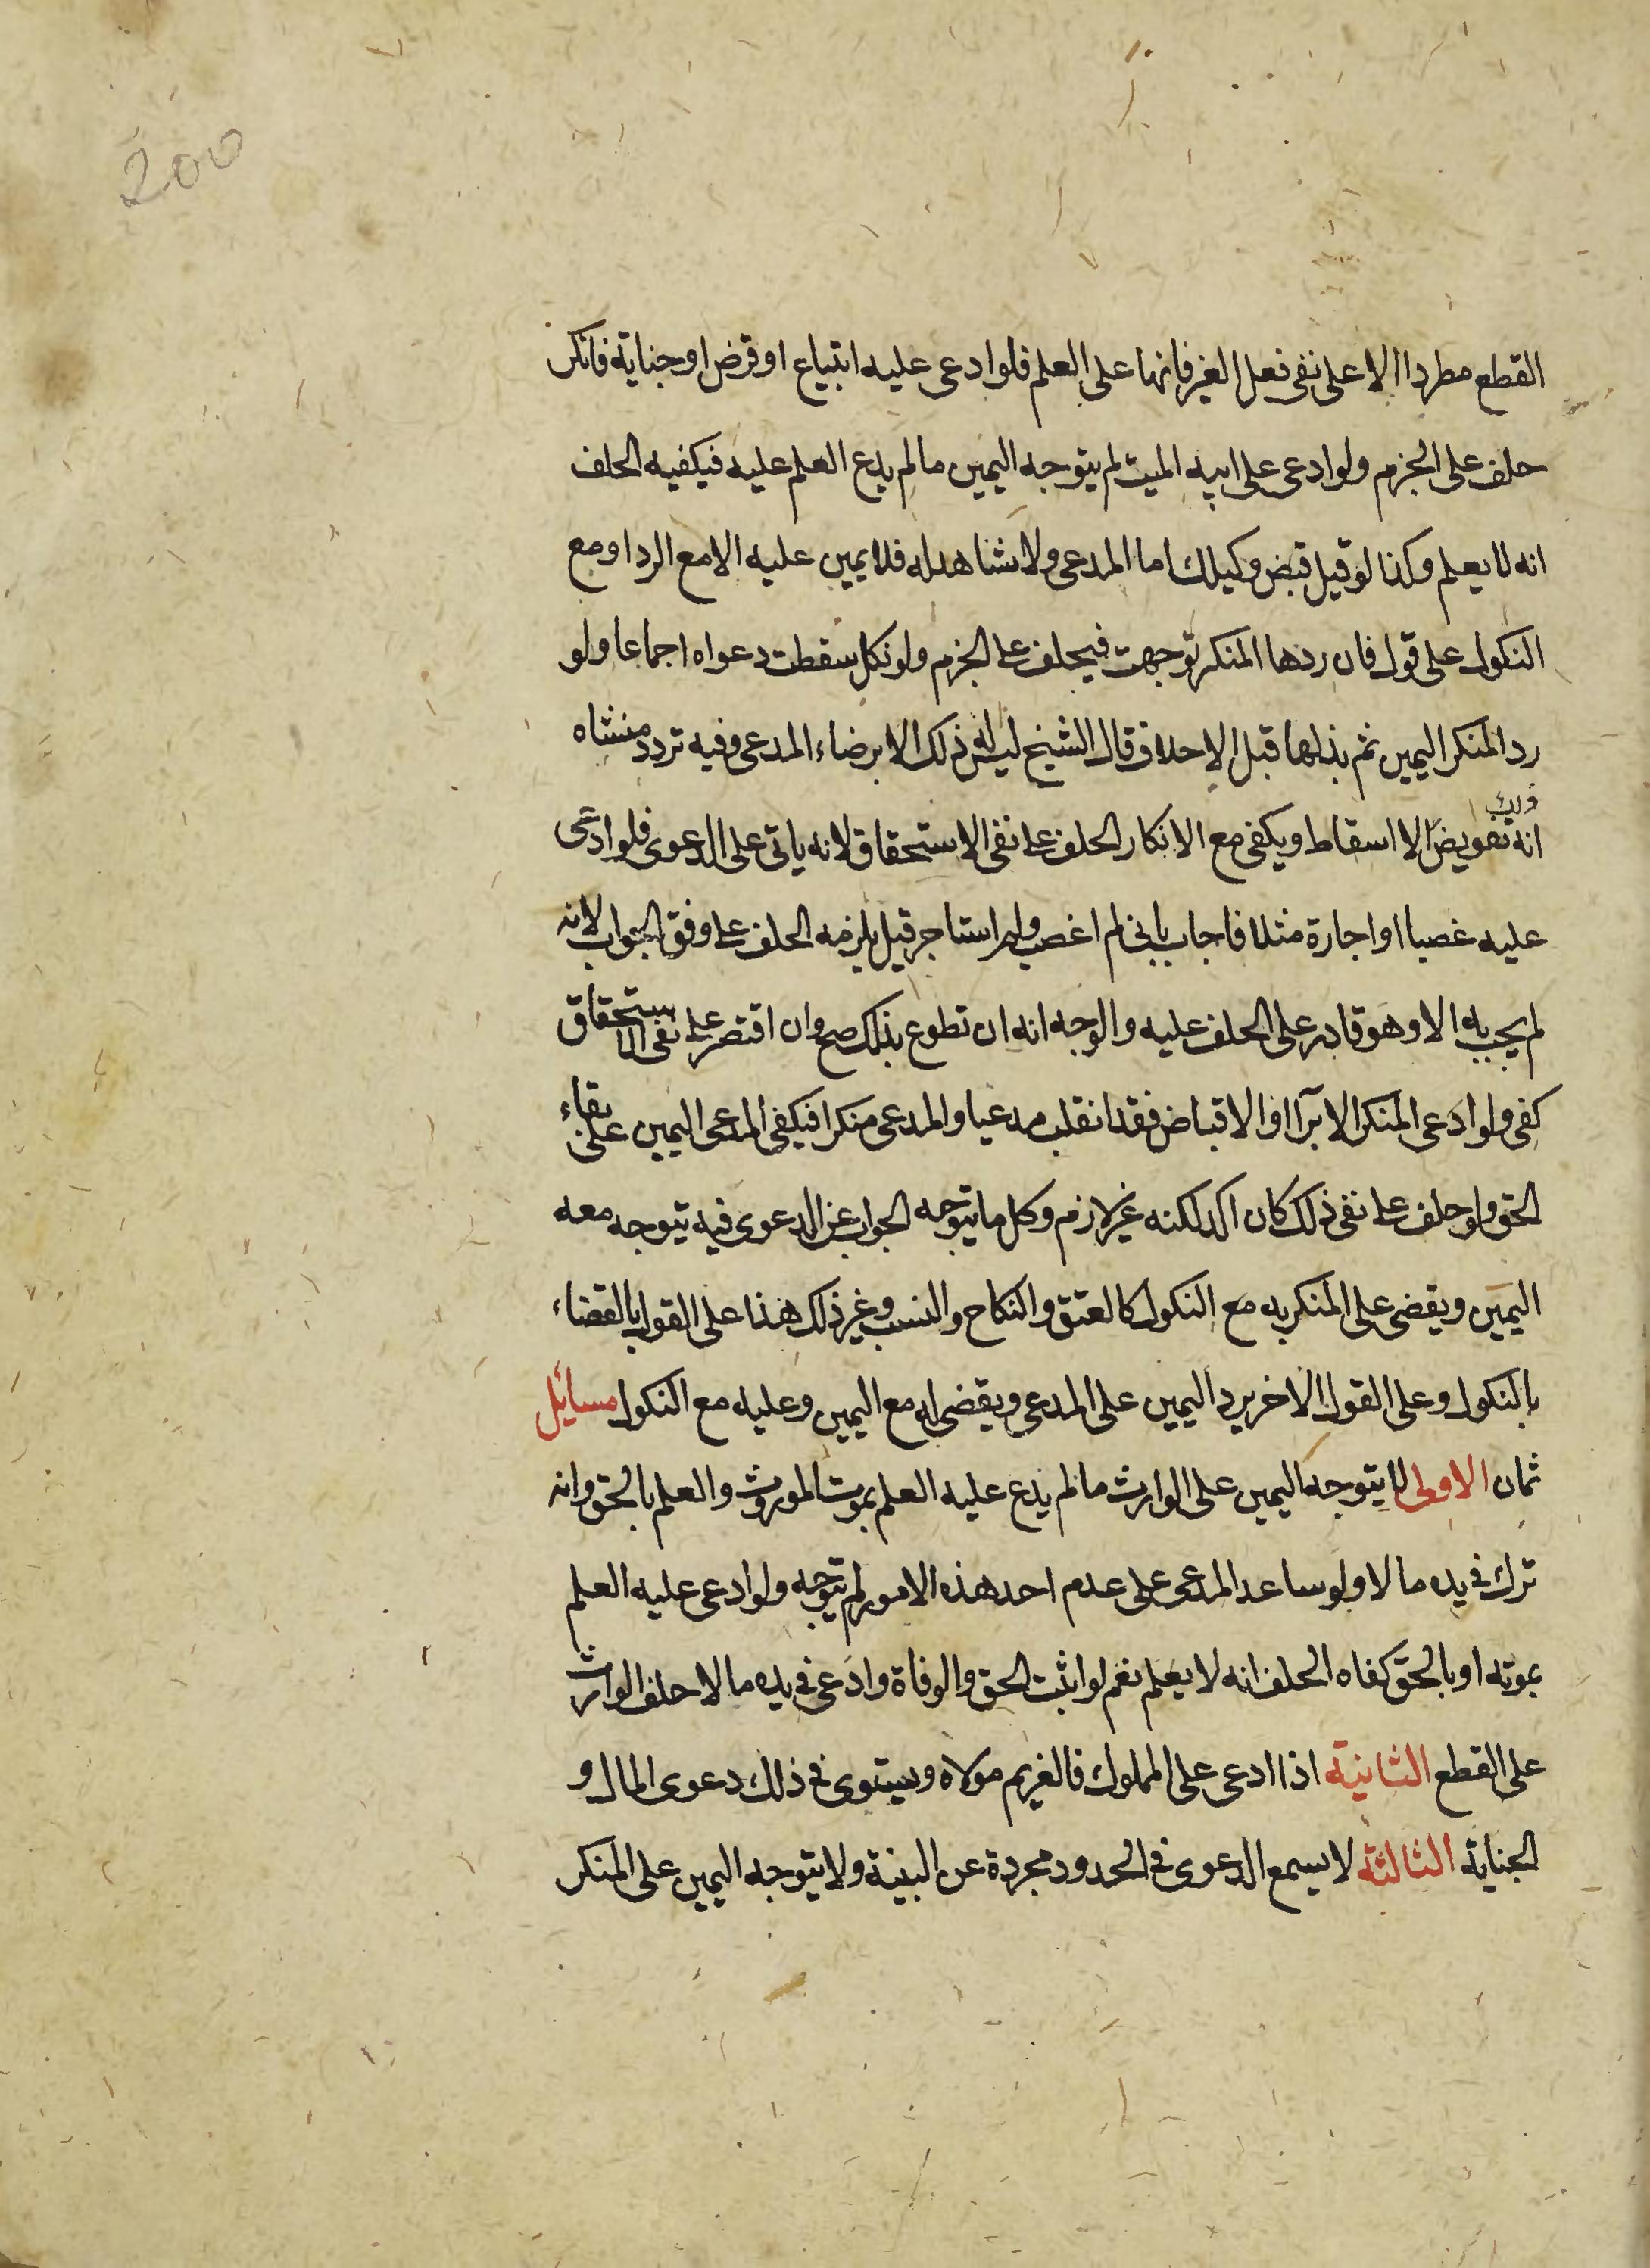 200
القطع مطردا الا على نفى فعل الغير فانها على العلم فلو ادعى عليه ابتياع او قرض او جناية فانكر
حلف على الجزم ولو ادعى على ابيه الميت لم يتوجه اليمين ما لم يدع العلم عليه فيكفيه الحلف
انه لا يعلم وكذا لو قيل قبض وكيلك اما المدعى ولا شاهد له فلا يمين عليه الا مع الرد او مع
النكول على قول فان ردها المنكر توجهت فيحلف على الجزم ولو نكل سقطت دعواه اجماعا ولو
رد المنكر اليمين ثم بذلها قبل الاحلاف قال الشيخ ليس له ذلك الا برضاء المدعى وفيه تردد منشاه
ذلك
انه تفويض لا اسقاط ويكفى مع الانكار الحلف على نفى الاستحقاق لانه ياتى على الدعوى فلو ادعى
عليه غصبا او اجارة مثلا فاجاب بانى لم اغصب ولم استاجر قيل يلزمه الحلف على وفق الجواب لانه
لم يجب به الا وهو قادر على الحلف عليه والوجه انه ان تطوع بذلك صح وان اقتصر على نفى الاستحقاق
كفى ولو ادعى المنكر الابرآ او الاقباض فقد انقلب مدعيا والمدعى منكرا فيكفى المدعى اليمين على بقاء
الحق ولو حلف على نفى ذلك كان اكد لكنه غير لازم وكل ما يتوجه الجواب عن الدعوى فيه يتوجه معه
اليمين ويقضى على المنكر به مع النكول كالعتق والنكاح والنسب وغير ذلك هذا على القول بالقضاء
بالنكول وعلى القول الاخر يرد اليمين على المدعى ويقضى له مع اليمين وعليه مع النكول مسائل
ثمان الاولى لا يتوجه اليمين على الوارث ما لم يدع عليه العلم بموت المورث والعلم بالحق وانه
ترك فى يده مالا ولو ساعد المدعى على عدم احد هذه الامور لم يتوجه ولو ادعى عليه العلم
بموته او بالحق كفاه الحلف انه لا يعلم نعم لو اثبت الحق والوفاة وادعى فى يده مالا حلف الوارث
على القطع الثانية اذا ادعى على المملوك فالغريم مولاه ويستوى فى ذلك دعوى المال و
الجناية الثالثة لا يسمع الدعوى فى الحدود مجردة عن البينة ولا يتوجه اليمين على المنكر